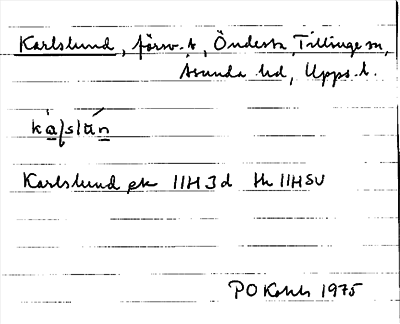 Karlslund, försv. t, Öndesta, Tillinge sn,
Åsunda hd, Upps. l.
Karlslund ek 11H3d th 11HSV
PO 1975